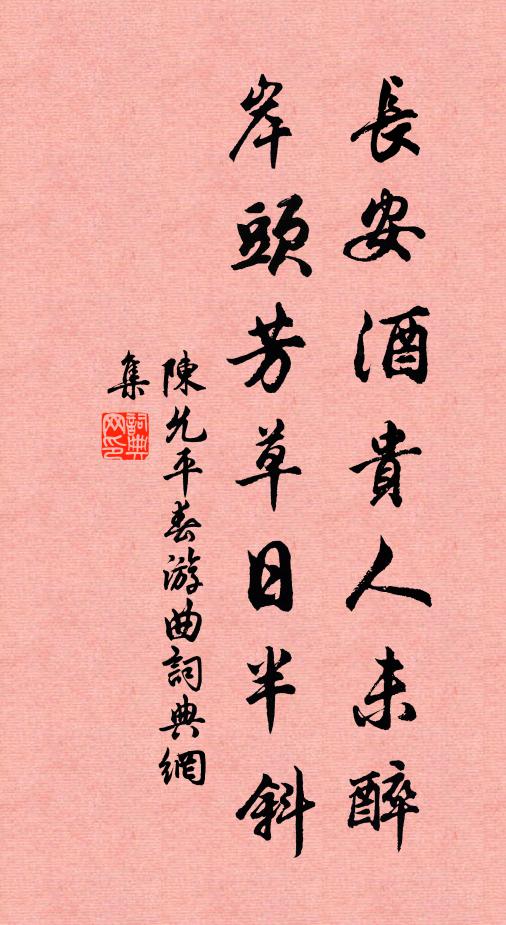 長安酒貴人未醉
岸頭芳草日半斜
陳允平春游曲詞典網
集
詞典
网印